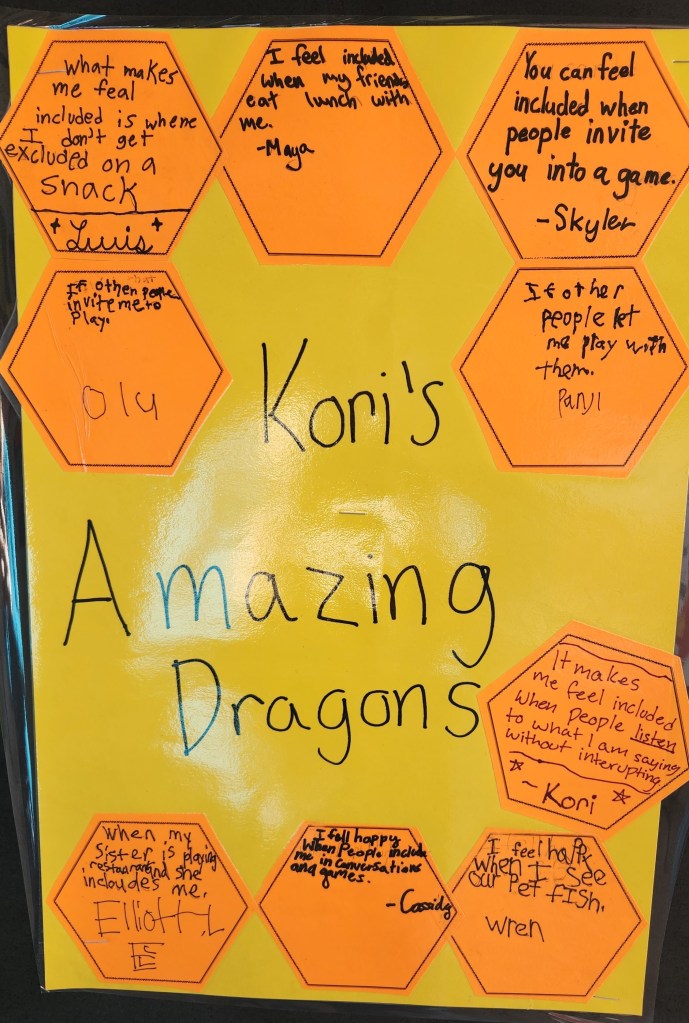 What makes
me feal
included is where
I don't get
excluded on a
snack
Luis
I feel included
when my friends
eat lunch with
me.
-Maya
You can feel
included when
people invite
you into a game.
-Skyler
If other people
invite me to
Play.
Olu
If other
people let
me play with
them.
Panji
Kori's
Amazing
Dragons
It makes
me feel included
when people listen
to what I am saying
without interupting
~Kori
When my
Sister is playing
restaurant and she
includes me.
Elliott, L
I fell happy
When People include
me in conversations
and games.
-Cassidy
I feel happy
when I see
our Pet fish.
wren